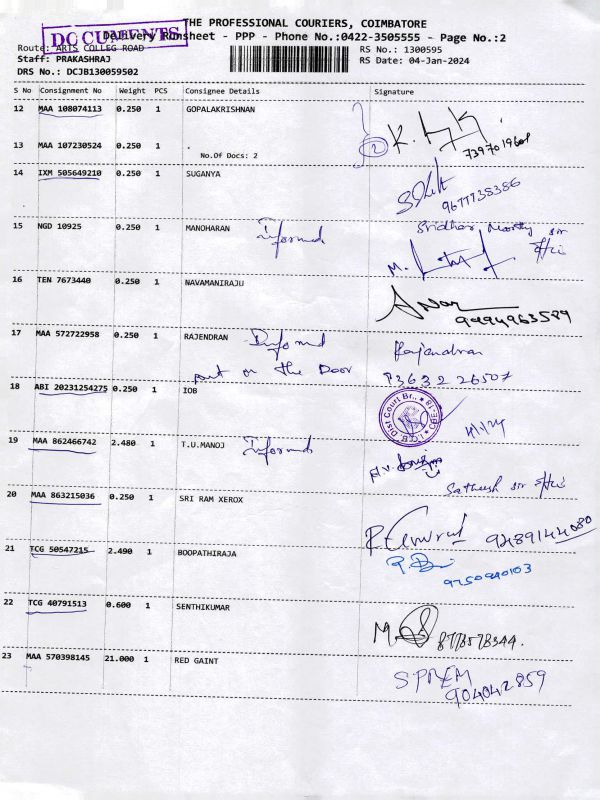 THE PROFESSIONAL COURIERS, COIMBATORE
DOCUMENTS
Delivery Runsheet - PPP - Phone No.:0422-3505555 - Page No.:2
Route: ARTS COLLEG ROAD
RS No.: 1300595
Staff: PRAKASHRAJ
RS Date: 04-Jan-2024
DRS No.: DCJB130059502
S No Consignment No Weight PCS Consignee Details Signature
12 MAA 108074113 0.250 1 GOPALAKRISHNAN
13 MAA 107230524 0.250 1 .
No.Of Docs: 2
2
7397019601
14 IXM 505649210 0.250 1 SUGANYA
9677738386
15 NGD 10925 0.250 1 MANOHARAN Informed
Sridhar Moorthy sir
16 TEN 7673440 0.250 1 NAVAMANIRAJU
9494963589
17 MAA 572722958 0.250 1 RAJENDRAN Informed
put on the Door
Rajendran
9363226507
18 ABI 20231254275 0.250 1 IOB
Dist Court Br.,
4/1/24
19 MAA 862466742 2.480 1 T.U.MANOJ Informed
Satheesh sir
20 MAA 863215036 0.250 1 SRI RAM XEROX
9489144080
21 TCG 50547215 2.490 1 BOOPATHIRAJA
9750940103
22 TCG 40791513 0.600 1 SENTHIKUMAR
23 MAA 570398145 21.000 1 RED GAINT
S PREM
904042859